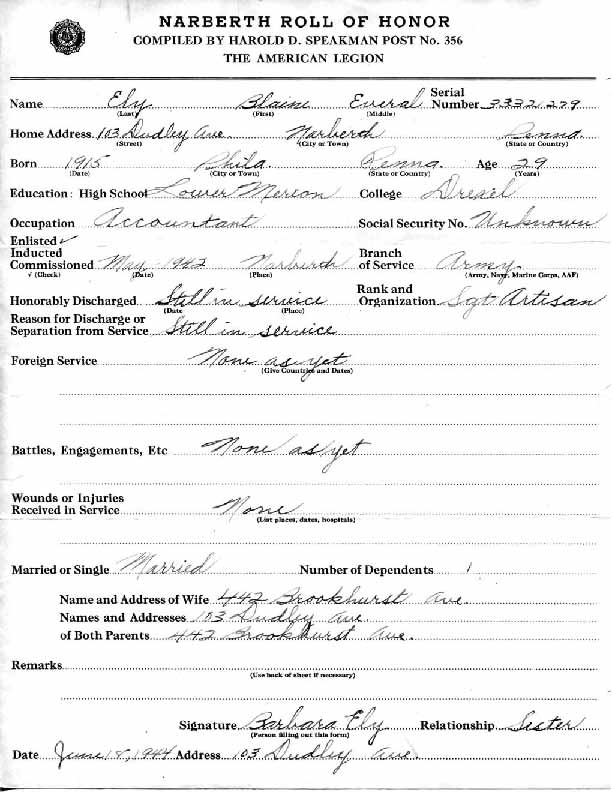 NARBERTH ROLL OF HONOR
COMPILED BY HAROLD D. SPEAKMAN POST No. 356
THE AMERICAN LEGION
Name Ely Blaine Everal Serial Number 33321279
(Last) (First) (Middle)
Home Address 103 Dudley Ave. Narberth Penna
(Street) (City or Town) (State or Country)
Born 1915 Phila. Penna. Age 29
(Date) (City or Town) (State or Country) (Years)
Education: High School Lower Merion College Drexel
Occupation Accountant Social Security No. Unknown
Enlisted ✓
Inducted Branch
Commissioned May 1942 Narberth of Service Army
√ (Check) (Date) (Place) (Army, Navy, Marine Corps, AAF)
Rank and
Honorably Discharged Still in service Organization Sgt Artisan
(Date (Place)
Reason for Discharge or
Separation from Service Still in service
Foreign Service None as yet
(Give Countries and Dates)
Battles, Engagements, Etc None as yet
Wounds or Injuries
Received in Service None
(List places, dates, hospitals)
Married or Single Married Number of Dependents 1
Name and Address of Wife 442 Brookhurst Ave.
Names and Addresses 103 Dudley Ave.
of Both Parents 442 Brookhurst Ave.
Remarks
(Use back of sheet if necessary)
Signature Barbara Ely Relationship Sister
(Person filling out this form)
Date June 18, 1944 Address 103 Dudley Ave.